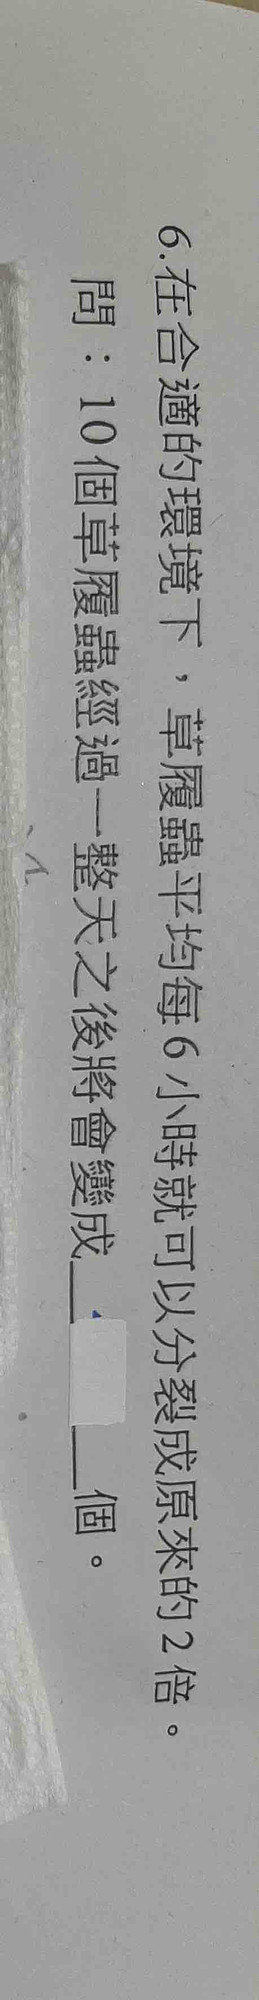 6.在合適的環境下，草履蟲平均每6小時就可以分裂成原來的2倍。
問：10個草履蟲經過一整天之後將會變成______個。